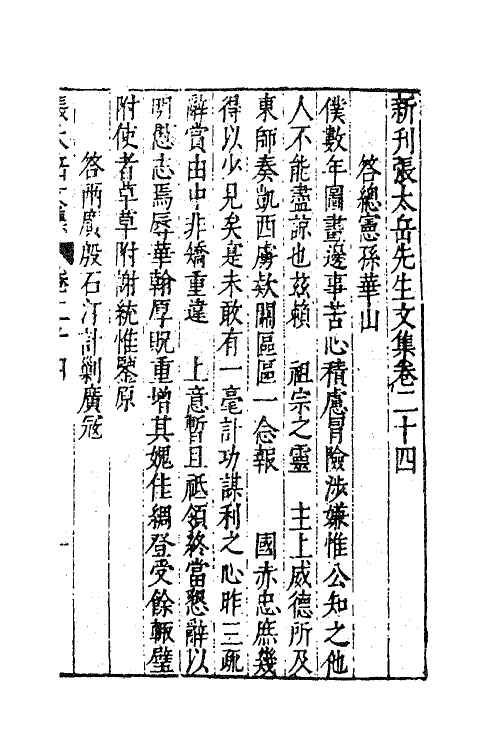 新刊張太岳先生文集卷二十四
答總憲孫華山
僕數年圖畫邊事苦心積慮冒險涉嫌惟公知之他
人不能盡諒也茲賴　祖宗之靈　主上威德所及
東師奏凱西虜欵關區區一念報　國赤忠庶幾
得以少見矣寔未敢有一毫計功謀利之心昨三疏
辭賞由中非矯重違　上意暫且祗領終當懇辭以
明愚志焉辱華翰厚貺重增其媿佳綢登受餘輙璧
附使者草草附謝統惟鑒原
答兩廣殷石汀計剿廣冦
張太岳文集　卷二十四　一